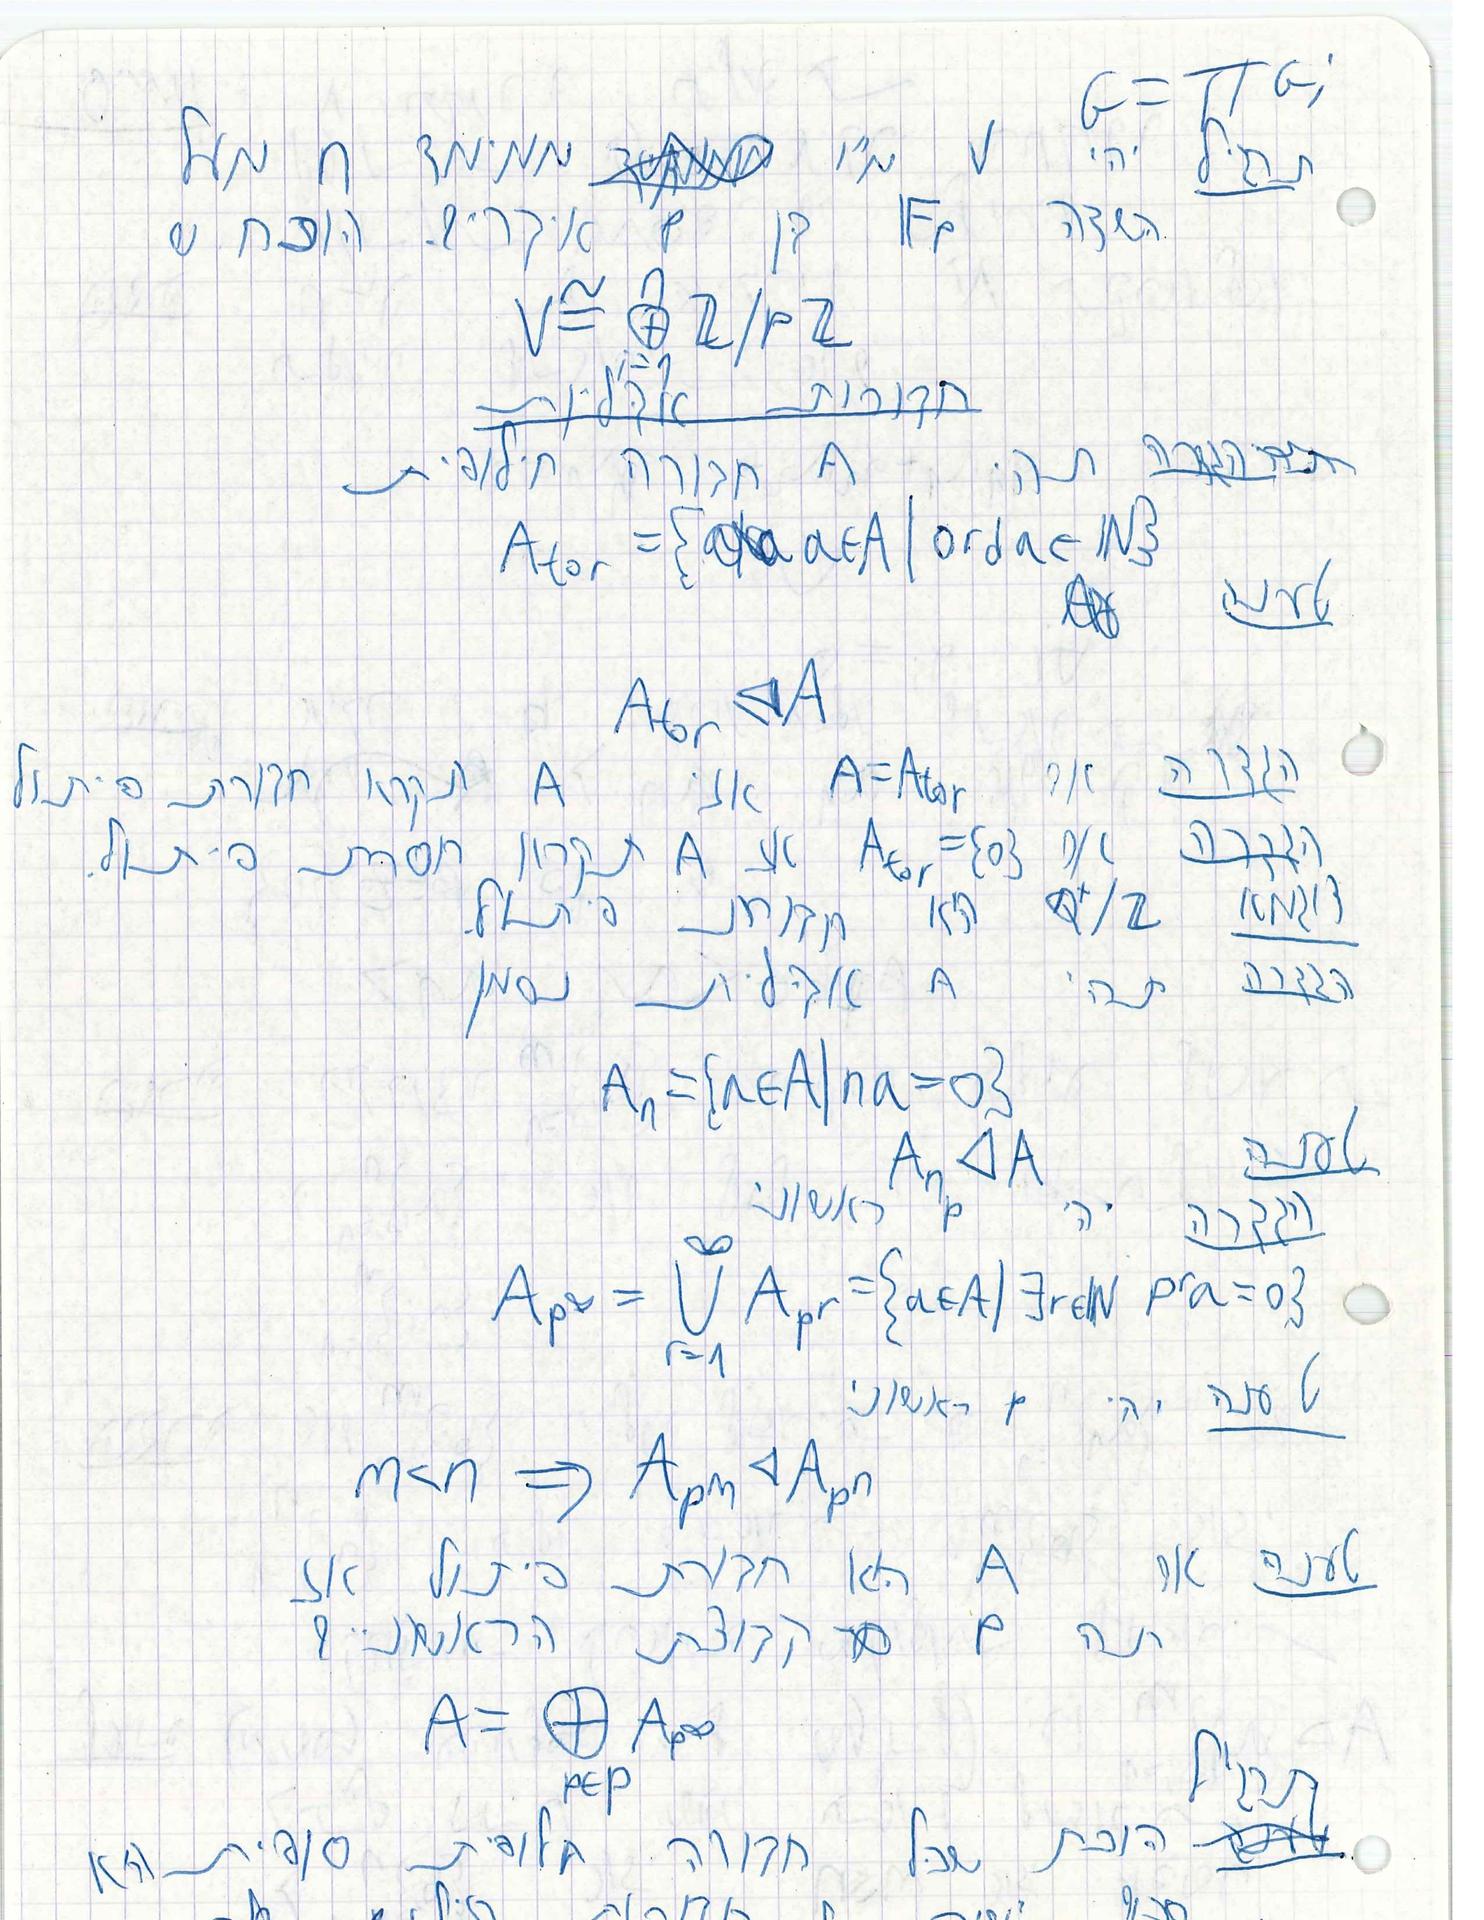 G = ∏ Gᵢ
תרגיל יהי V מ"ו ממימד n מעל
השדה 𝔽p בן p איברים. הוכח ש
V ≅ ⊕ⁿᵢ₌₁ ℤ/pℤ
חבורות אבליות
הגדרה תהי A חבורה חילופית
A_tor = {a∈A | ord a ∈ ℕ}
טענה
A_tor ◁ A
הגדרה אם A = A_tor אזי A תקרא חבורת פיתול
הגדרה אם A_tor = {0} אז A תקרא חסרת פיתול.
דוגמא ℚ⁺/ℤ היא חבורת פיתול.
הגדרה תהי A אבלית נסמן
A_n = {a∈A | na = 0}
טענה A_n ◁ A
הגדרה יהי p ראשוני
A_p^∞ = ⋃_{r=1}^∞ A_p^r = {a∈A | ∃r∈ℕ p^r a = 0}
טענה יהי p ראשוני
m<n ⟹ A_p^m ◁ A_p^n
טענה אם A היא חבורת פיתול אז
תהי P קבוצת הראשוניים
A = ⊕_{p∈P} A_p^∞
תרגיל
הוכח שכל חבורה חלופית סופית היא